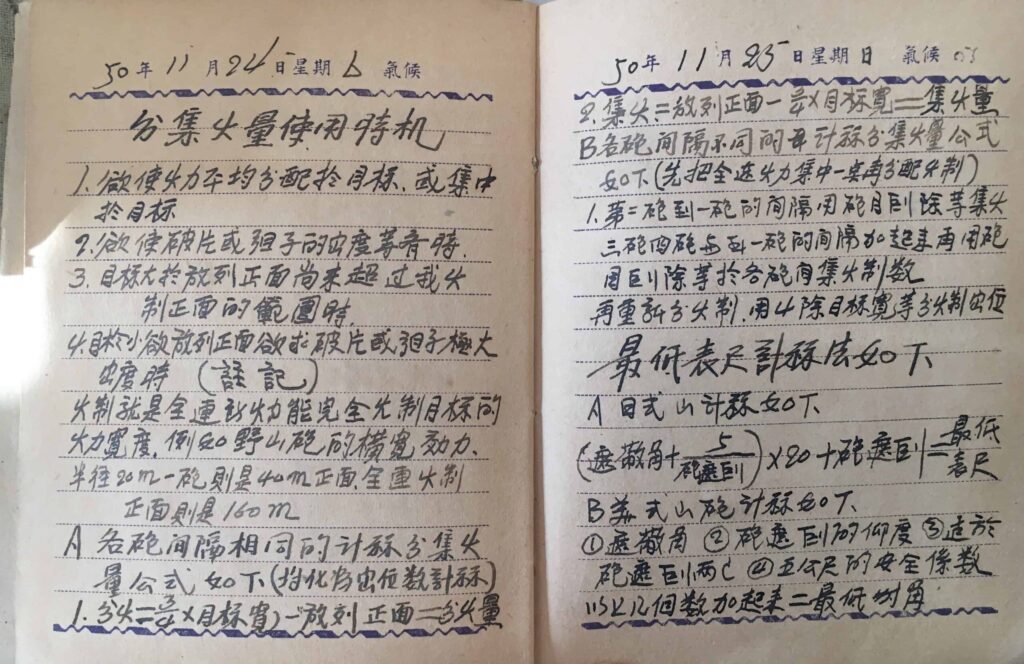 50年 11月 24日星期 6 氣候
分集火量使用時机
1. 欲使火力平均分配於目標、或集中
於目標
2. 欲使破片或弾子的密度等齐時.
3. 目標大於放列正面尚未超过我火
制正面的範圍時.
4. 目標小於放列正面欲求破片或弾子極大
密度時 (註記)
火制就是全連的火力能完全火制目標的
火力寬度. 例如野山砲的橫寬効力.
半徑20m一砲則是40m正面全連火制
正面則是160m
A 各砲间隔相同的計祘分集火
量公式 如下(均化为密位數計祘)
1. 分火=(3/4×目標寬)一放列正面=分火量
50年 11月 25日星期日 氣候
2. 集火=放列正面一3/4×目標寬=集火量
B 各砲间隔不同的 計祘分集火量公式
如下(先把全連火力集中一点再分配火制)
1. 第二砲到一砲的间隔用砲目巨除等集火
三砲四砲 到一砲的间隔加起来再用砲
目巨除等於各砲向集火制數
再重新分火制.用4除目標寬等分火制密位
最低表尺計祘法如下
A 日式山計祘如下.
(遮蔽角+5/砲遮巨)×20+砲遮巨=最低表尺
B 美式山砲計祘如下.
①遮蔽角 ②砲遮巨的仰度 ③ 於
砲遮巨 ④五公尺的安全係數
以上几個數加起来=最低 角